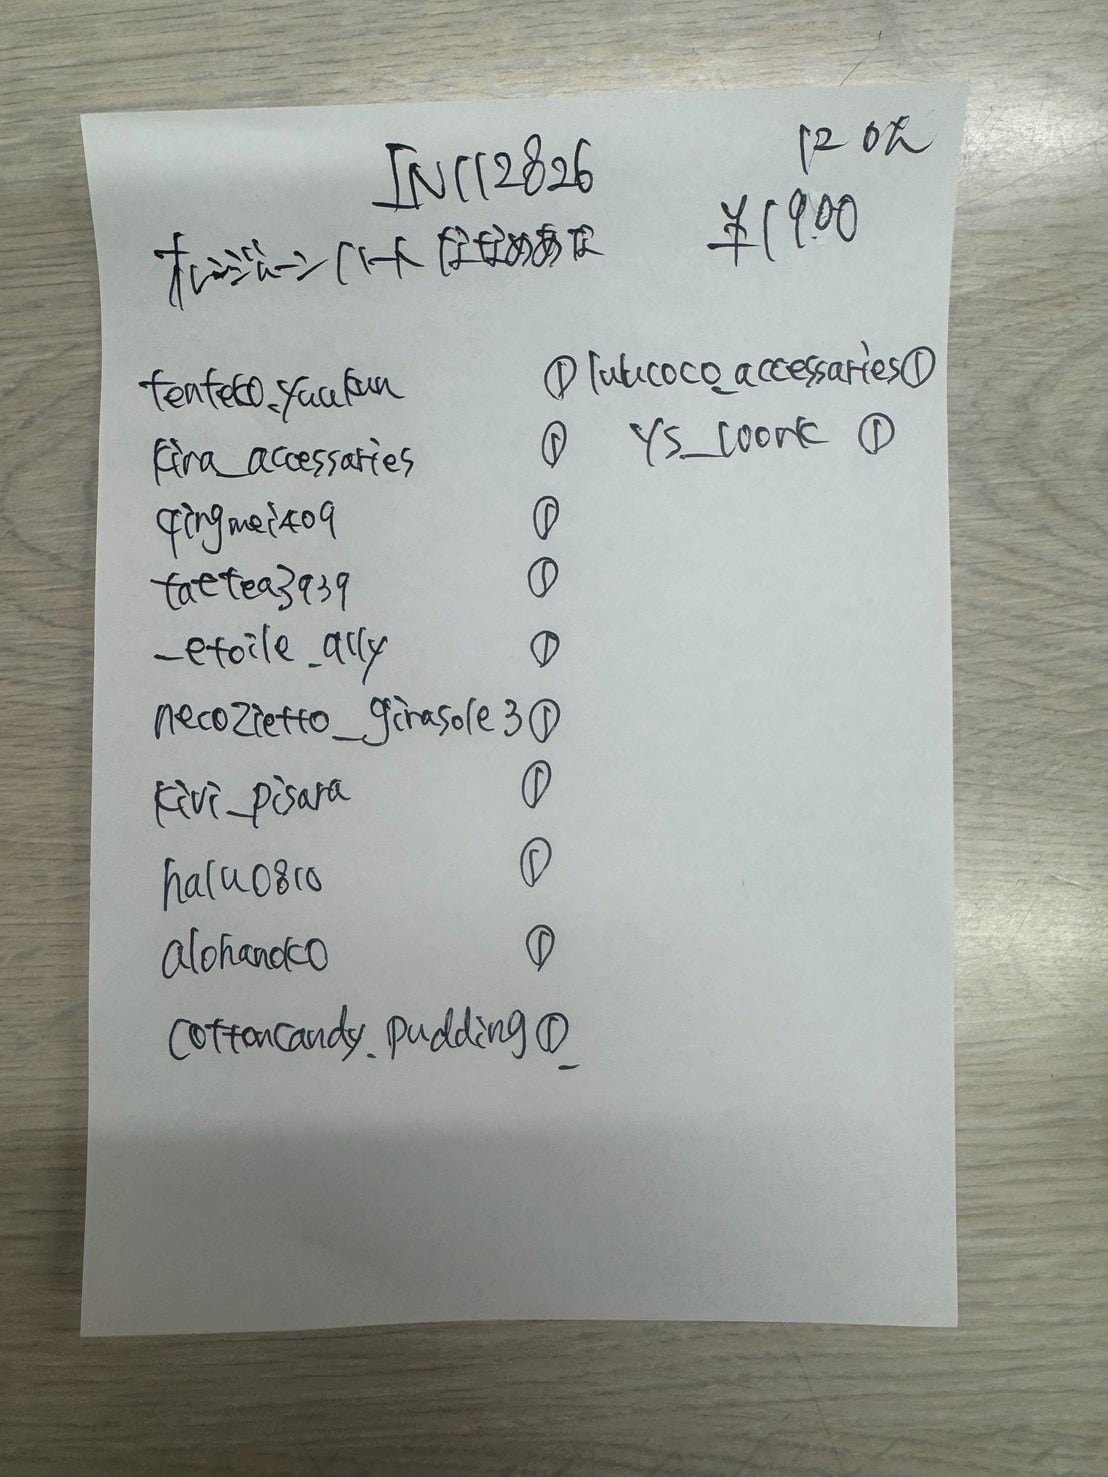 IN112826
12 0点
¥1900
オレンジーンハートななめあな
tenteko.yuukun ①
kira_accessaries ①
qingmei409 ①
taetea3939 ①
_etoile_ally ①
necozietto_girasole3 ①
kivi_pisara ①
halu0810 ①
alohandko ①
cottoncandy.pudding ①
lulucoco_accessaries ①